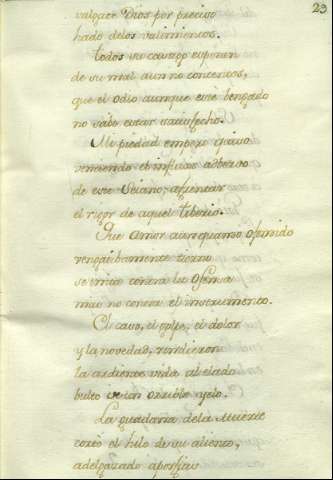 23
valgate Dios por preciso
hado delos valimientos.
Todos su castigo esperan
de su mal aun no contentos,
que el odio aunque esté bengado
no sabe estar satisfecho.
Mi piedad empero quiso
venciendo el influxo adberso
de este Seiano, afrentar
el rigor de aquel Tiberio.
Que Amor aun quando ofendido
tierno
se irrita contra la ofensa
mas no contra el instrumento.
El caso, el golpe, el dolor
y la novedad, rindieron
la ardiente vida al elado
bulto de un orrible yelo.
La guadaña dela Muerte
cortó el hilo de su aliento,
adelgazado aporfias